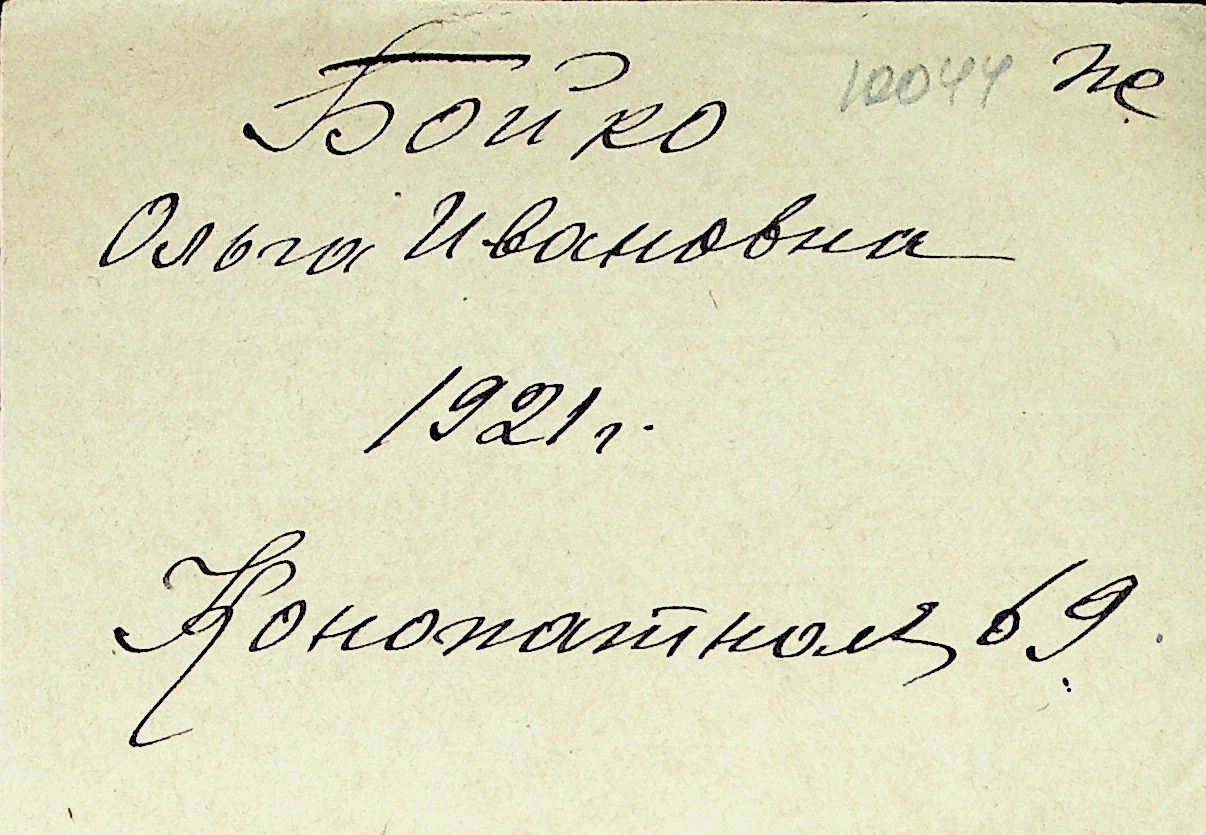 Бойко 10044
Ольга Ивановна
1921 г.
Конопатная 69